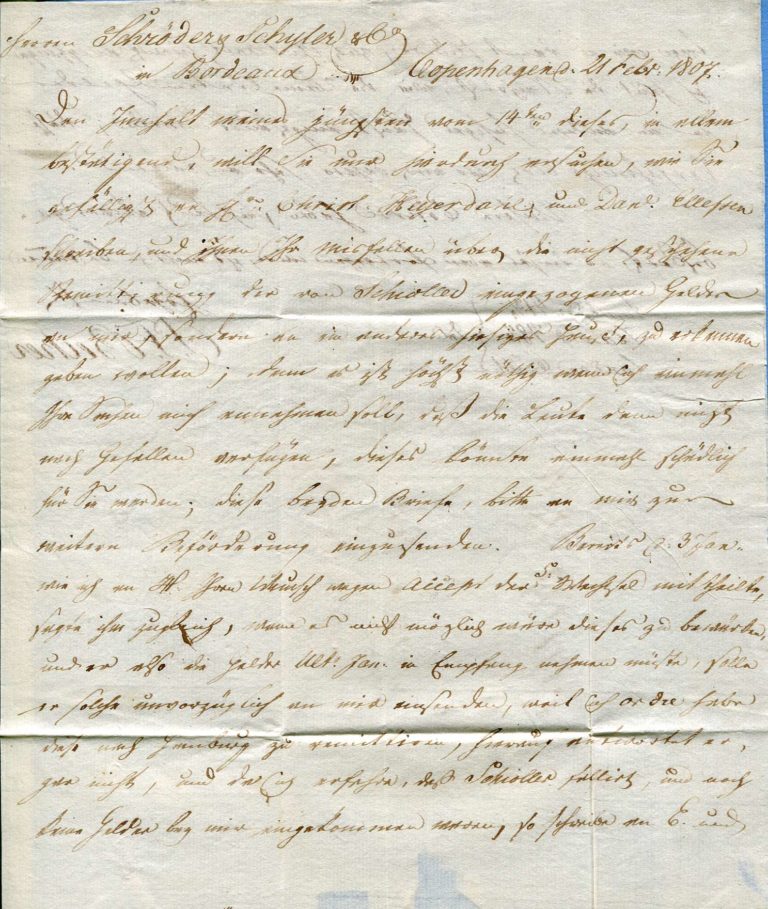 Herren Schröder & Schyler & Co
in Bordeaux Copenhagen d. 21 Febr. 1807.
Den Innhalt meines jüngsten vom 14ten dieses, in allem
bestätigend, will Sie nur hiedurch ersuchen, wie Sie
gefälligst an Hrn. Christ. und Danl. Ellefsen
schreiben, und ihnen Ihr Misfallen über die nicht geschehene
Remittirung der von Schioller eingezogenen Gelder
an mir, sondern an ein anderes hiesiges Haus, zu erkennen
geben wollen; denn es ist höchst nöthig wenn ich einmahl
Ihr Sachen mich annehmen soll, daß die Leute denn nicht
nach Gefallen verfügen, dieses könnte einmahl schädlich
für Sie werden; diese beyden Briefe, bitte an mir zur
weitern Beförderung einzusenden. d. 3 Jan.
wie ich an E. Ihren Wunsch wegen Accept der Wechsel mittheilte,
sagte ihm zugleich, wenn es nicht möglich wäre dieses zu bewürken,
und er also die Gelder Ult. Jan. in Empfang nehmen müste, solle
er solche unvorzüglich an mir einsenden, weil ich ordre habe
diese nach Hamburg zu remittiren, hierauf antwortet er,
gar nicht, und da ich erfahre, daß Schioller fallirt, und noch
keine Gelder bey mir eingekommen waren, so schreibe an E. und